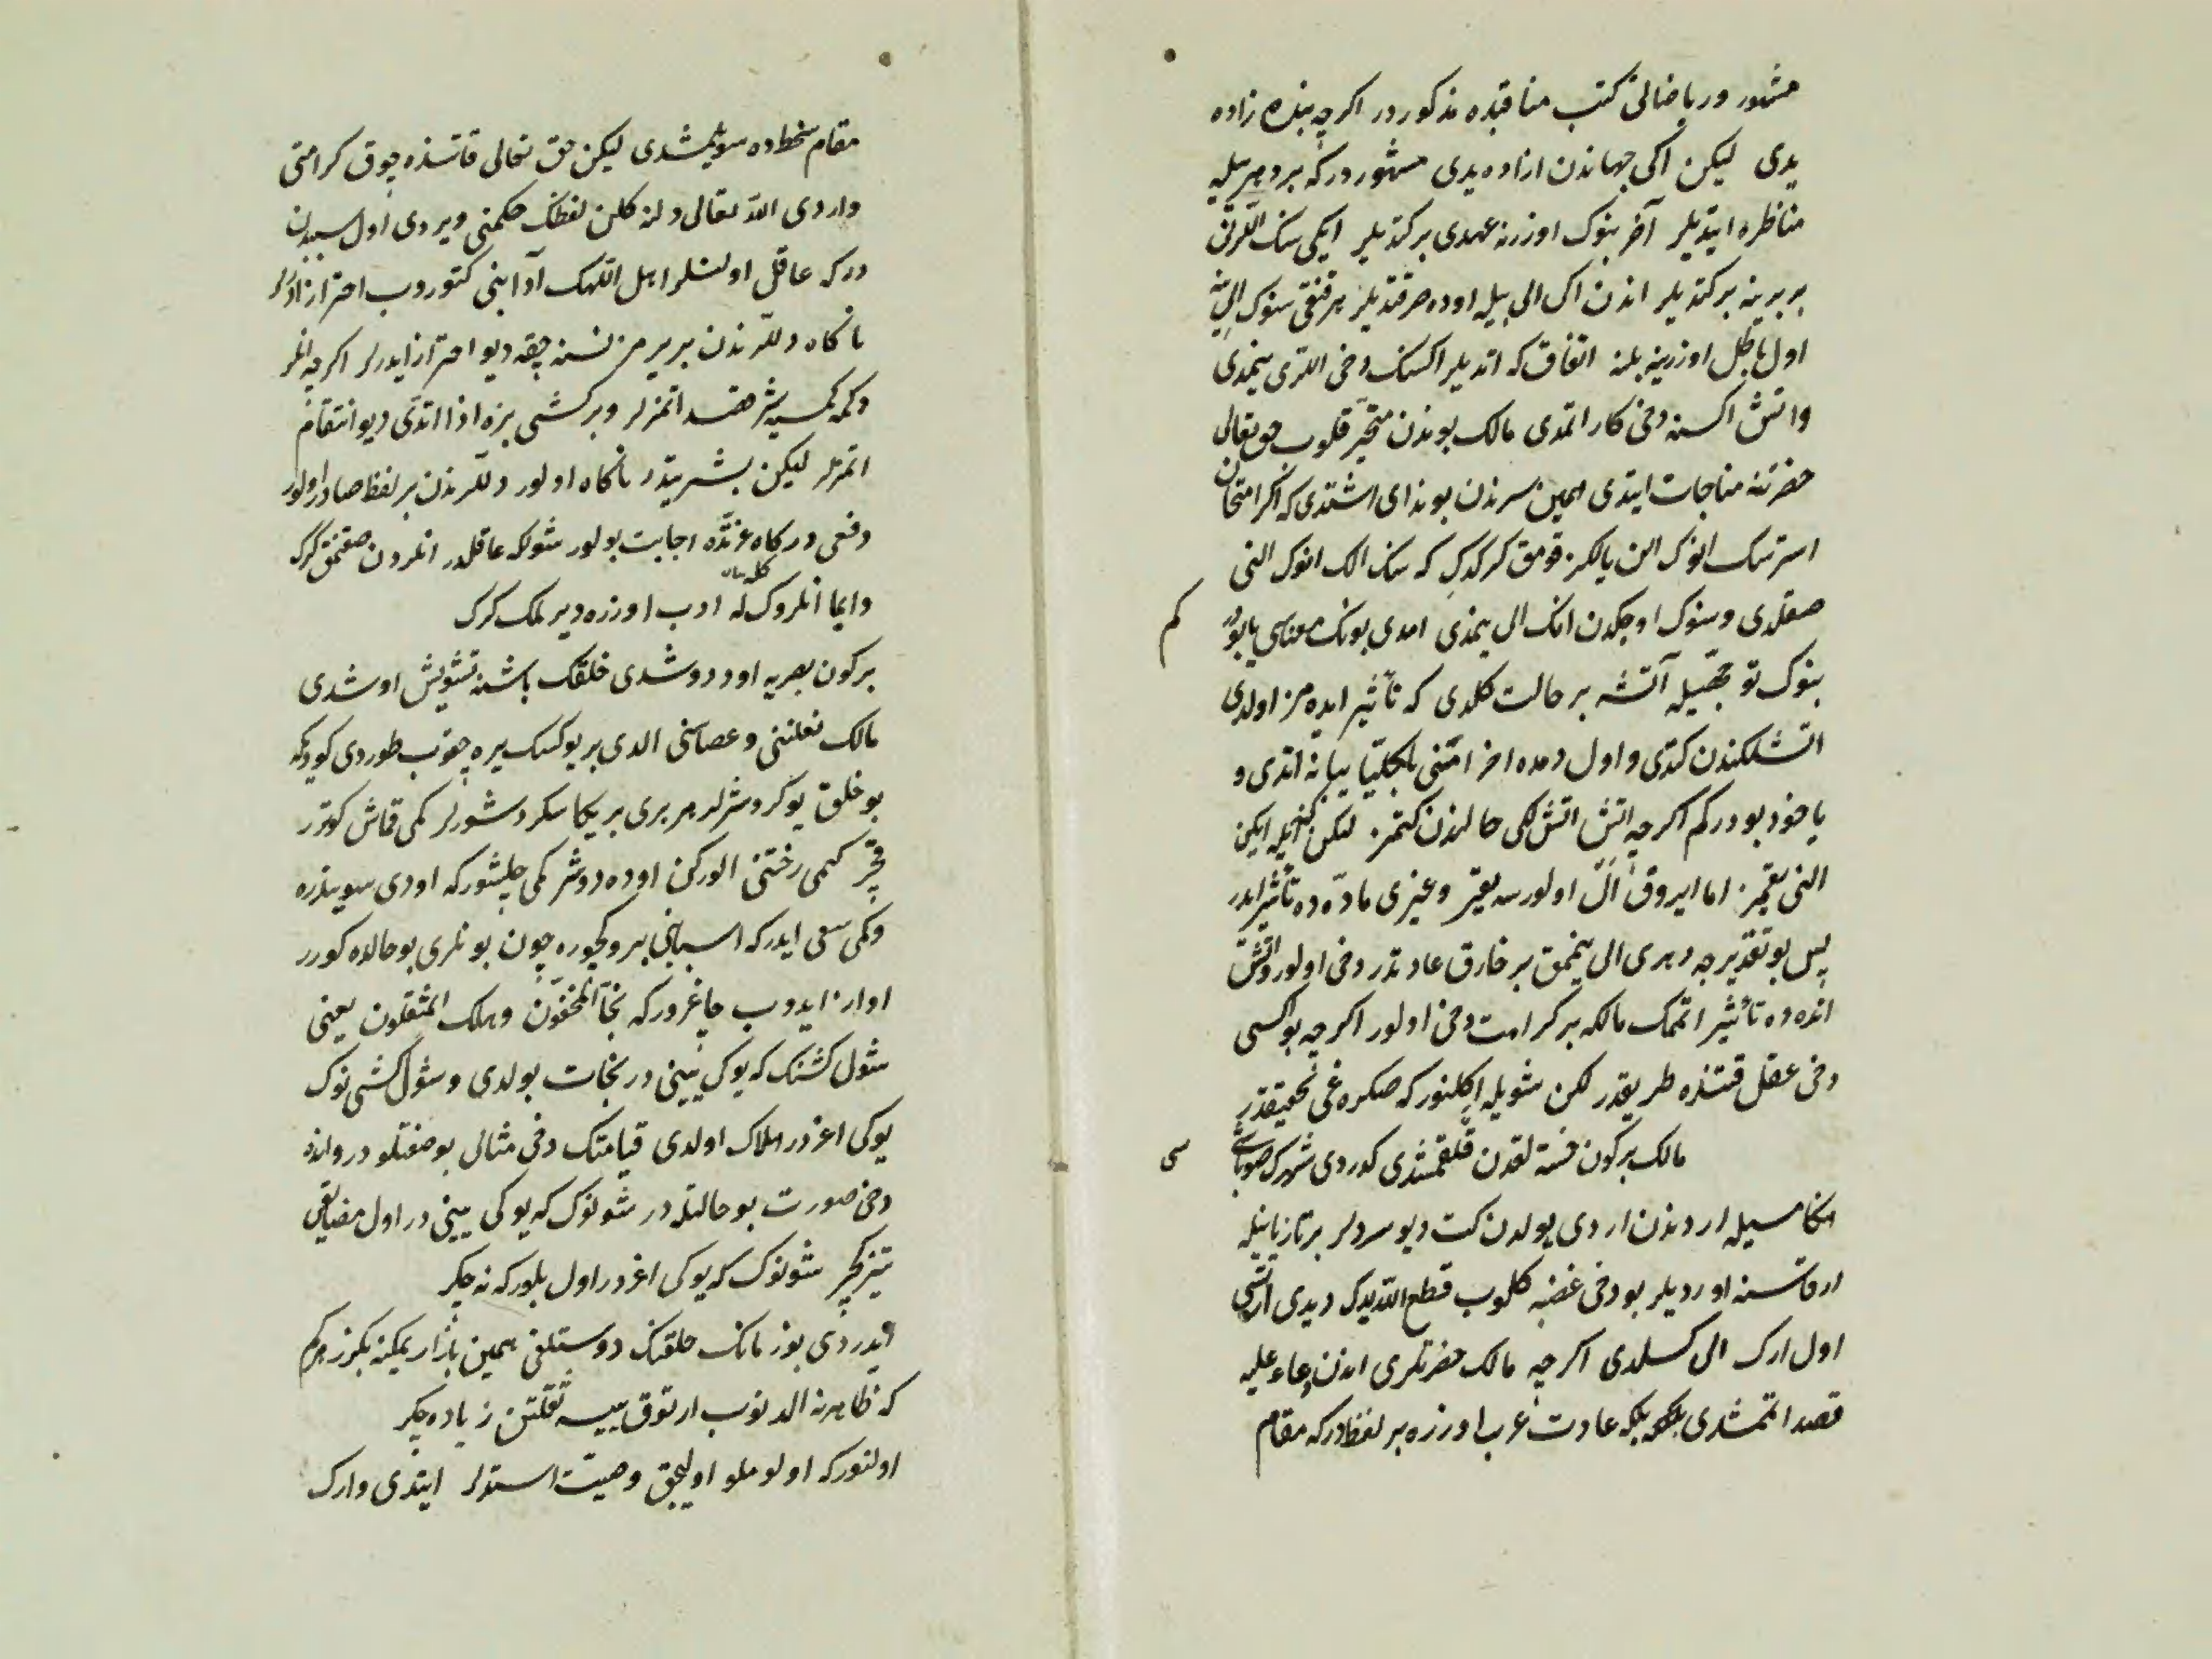 مشهور و ریاضاتی کتب مناقبده مذکوردر اکرچه بنده زاده
یدی لیکن اکی جهاندن ازاده یدی مشهوردرکه بر دهریله
مناظره ایتدیلر آخر بنوک اوزرنه عهدی برکتدیلر ایکی سنک اللرن
بربرینه برکتدیلر اندن اک الی بیله اوده صوقتدیلر هر قنقی سنوک الی ینه
اول باطل اوزرینه بلنه اتفاق که اتدیلر اکسنک دخی اللری ینمدی
واتش اکسنه دخی کار اتمدی مالک بوندن متحیر قلوب حق تعالی
حضرتنه مناجات ایتدی همین سرندن بو ندای اشتدی که اکر امتحان
استرسک انوک الن یالکز قومق کرکدک که سنک الک انوک النی
صقلدی وسنوک اوجکدن انک الی ینمدی امدی بونک معناسی یا بودر
کم
بنوک توجهیله آتشه بر حالت کلدی که تأثیر ایده مز اولدی
اتشلکندن کتدی واول دمده احراقنی بالکلیا بیانه اتدی و
یا خود بودرکم اکرچه اتش اتش لکی حالندن کتمز لیکن ایکن
النی یقمز اما ایروق ال اولورسه یقر وغیری ماده ده تأثیر ایدر
پس بو تقدیرجه دهری الی ینممق بر خارق عادتدر دخی اولور واتش
انده ده تأثیر اتممک مالکه بر کرامت دخی اولور اکرچه بو اکسی
دخی عقل قتنده طریقدر لکن شویله اکلنورکه صکره غی تحقیقدر
مالک برکون خسته لقدن قلقمشدی کوردی شهرک صوباشی
سی
انکا مسیله اردندن اردی یولدن کت دیو سردلر بر تازیانیله
ارقاسنه اوردیلر بو دخی غضبه کلوب قطع الله یدک دیدی ارتسی
اول ارک الی کسلدی اکرچه مالک حضرتلری اندن دعاء علیه
قصد اتممشدی بلکه عادت عرب اوزره بر لفظدرکه مقام
مقام سخطده سویلمشدی لیکن حق تعالی قاتنده چوق کرامتی
واردی الله تعالی دلنه کلن لفظک حکمنی ویردی اول سببدن
درکه عاقل اولنلر اهل اللهک آدابنی کتوروب احتراز ایدرلر
ناکاه دللرندن بر یرمز نسنه چقه دیو احتراز ایدرلر اکرچه انلر
دکمه کمسیه شر قصد اتمزلر وبر کشی بزه اذا اتدی دیو انتقام
اتمزلر لیکن بشریتدر ناکاه اولور دللرندن بر لفظ صادر اولور
دخی درکاه عزتده اجابت بولور شولکه عاقلدر انلردن صقنمق کرک
دایما انلروکله ادب اوزره دیرلمک کرک
برکون بصریه اود دوشدی خلقک باشنه تشویش اوشدی
مالک نعلیننی وعصاسنی الدی بر یوکسک یره چقوب طوردی کوردیکه
بو خلق یوکروشرلر هر بری بر یکا سکردشورلر کمی قماش کوتورر
قچر کمی رختنی الورکن اوده دوشر کمی چلشورکه اودی سویندره
وکمی سعی ایدرکه اسبابنی برو کچوره چون بونلری بو حالده کورر
اواز ایدوب چاغرورکه نجا المخفون وهلک المثقلون یعنی
شول کشنک که یوکی یینی در نجات بولدی وشول کشی نوک
یوکی اغردر هلاک اولدی قیامتک دخی مثالی بو صفتلودر وانده
دخی صورت بو حالتله در شونوک که یوکی یینی در اول مضایقی
تیز کچر شونوک که یوکی اغردر اول بلورکه نه چکر
ایدردی بو زمانک خلقنک دوستلغی همین بازار یمکنه بکزر
که ظاهرنه الدنوب ارتوق ییسه ثقلتن زیاده چکر
اولنورکه اولو ملو اولیجق وصیت استدلر ایتدی وارک